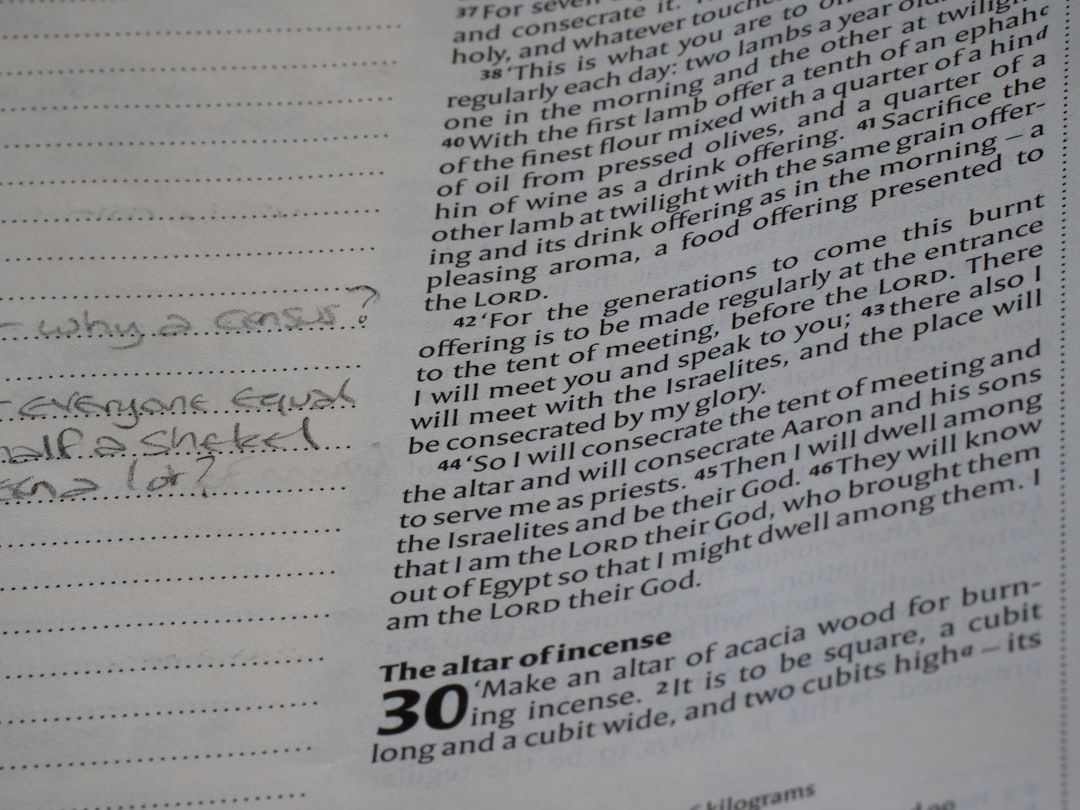 - why a census?
- everyone equal
half a shekel
lot?
37 For seven
and consecrate it.
holy, and whatever touches
38 ‘This is what you are to
regularly each day: two lambs a year old
one in the morning and the other at twilight
40 With the first lamb offer a tenth of an ephah c
of the finest flour mixed with a quarter of a hin d
of oil from pressed olives, and a quarter of a
hin of wine as a drink offering. 41 Sacrifice the
other lamb at twilight with the same grain offer-
ing and its drink offering as in the morning – a
pleasing aroma, a food offering presented to
the LORD.
42 ‘For the generations to come this burnt
offering is to be made regularly at the entrance
to the tent of meeting, before the LORD. There
I will meet you and speak to you; 43 there also I
will meet with the Israelites, and the place will
be consecrated by my glory.
44 ‘So I will consecrate the tent of meeting and
the altar and will consecrate Aaron and his sons
to serve me as priests. 45 Then I will dwell among
the Israelites and be their God. 46 They will know
that I am the LORD their God, who brought them
out of Egypt so that I might dwell among them. I
am the LORD their God.
The altar of incense
30 ‘Make an altar of acacia wood for burn-
ing incense. 2 It is to be square, a cubit
long and a cubit wide, and two cubits high a – its
kilograms